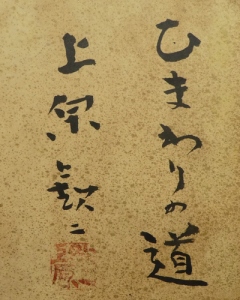 ひまわりの道
上原敬二